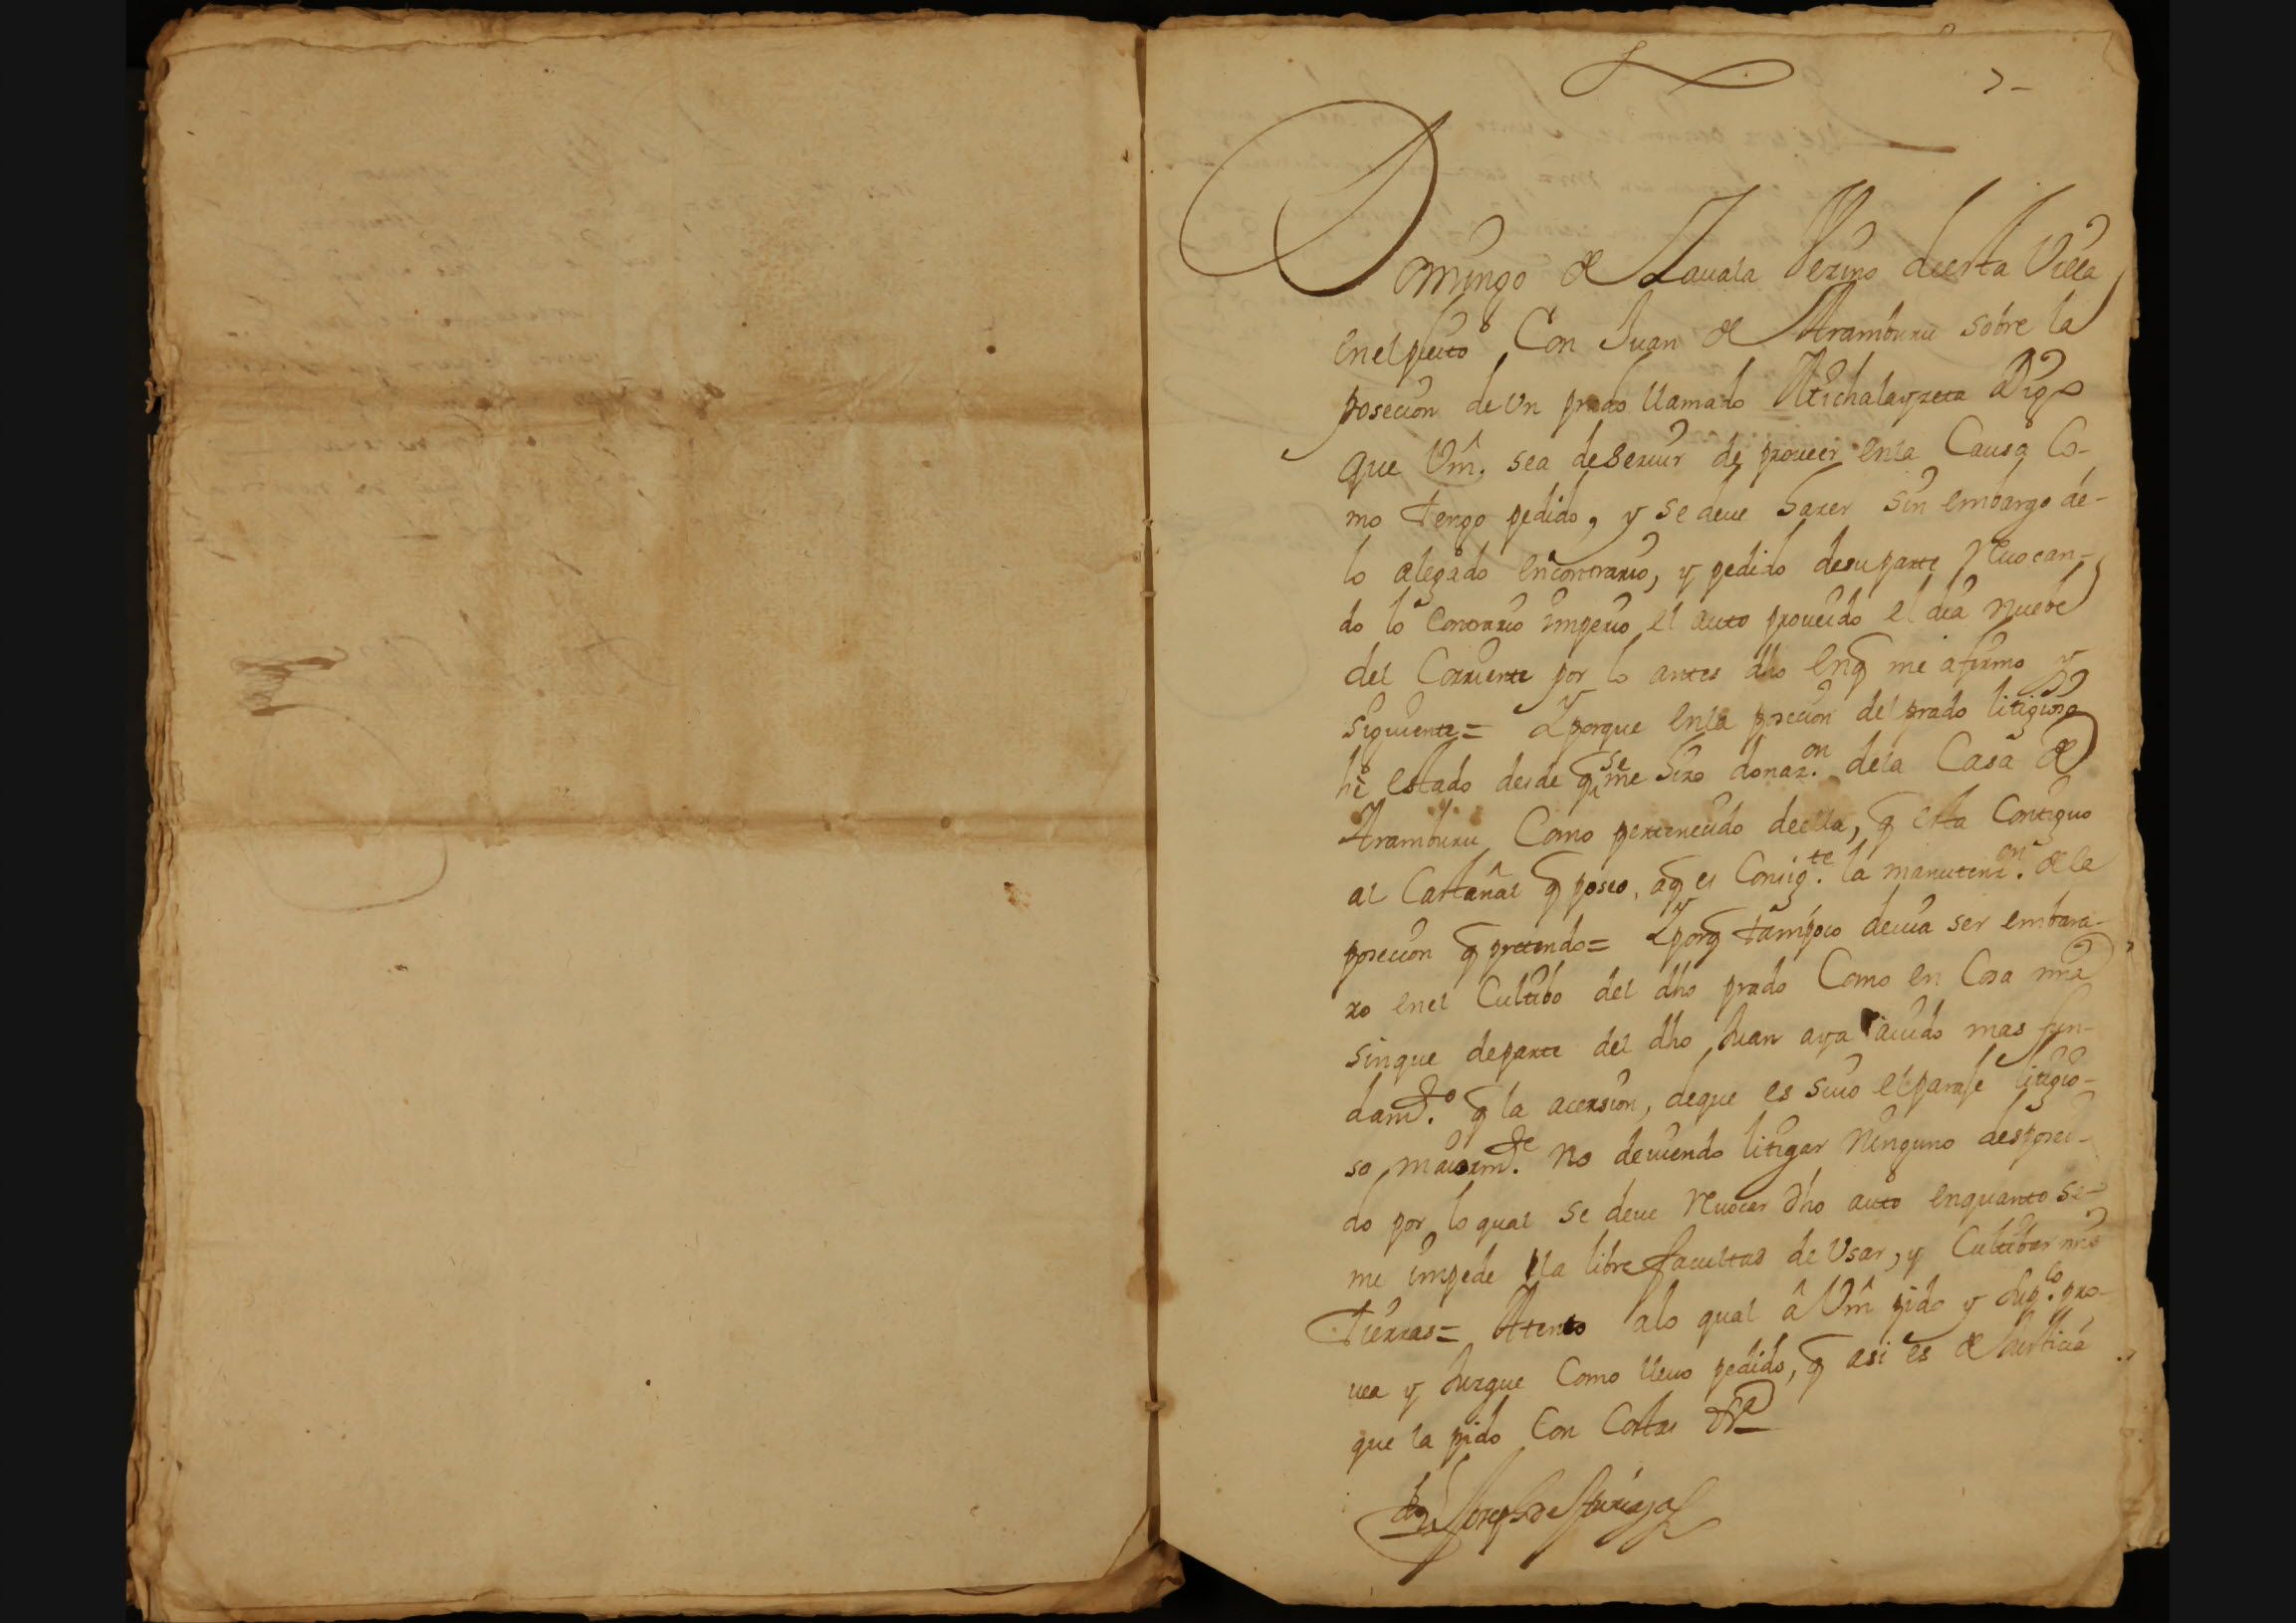 7-
Domingo de Zauala Vezino deesta Villa
enel pleito Con Juan de Aramburu sobre la
posecion de Vn prado llamado Digo
que Vm̂. sea deseruir de proueer enla Causa Co-
mo tengo pedido, y se deue hazer sin embargo de-
lo alegado encontrario, y pedido desuparte Reuocan-
do lo contrario imperio el auto proueido el dia nuebe
del Corriente por lo antes dho enq̃ me afirmo y
siguiente= Y porque enla posecion del prado litigioso
hè estado desde q̃ se me hizo donaz.on dela Casa de
Aramburu Como pertenecido deella, q̃ esta Contiguo
al Castañal q̃ poseo, aq̃ es Consig.te la manutenz.on dela
posecion q̃ pretendo= Y porq̃ tampoco deuia ser embara-
zo enel Cultibo del dho prado Como en Cosa mia
sinque departe del dho Juan aya auido mas fun-
dam.to q̃ la acersion, deque es suio elparaje litigio-
so, maiorm.te no deuiendo litigar ninguno desposei-
do por loqual se deue Reuocar dho auto enquanto se-
me impede la libre facultad de Vsar, y Cultibar mis
tierras= Atento alo qual â Vm̂ pido y sup.co pro-
uea y Juzgue Como lleuo pedido, q̃ asi es de Justicia
que la pido Con Costas
Joseph de